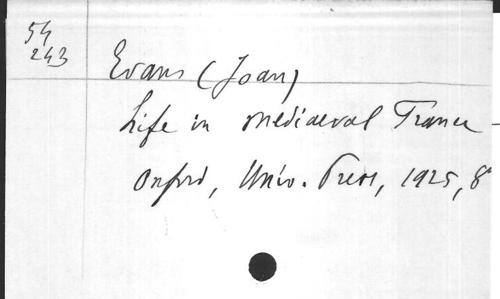 54
243
Evans (Joan)
Life in Mediaeval France -
Oxford, Univ. Press, 1925, 8°